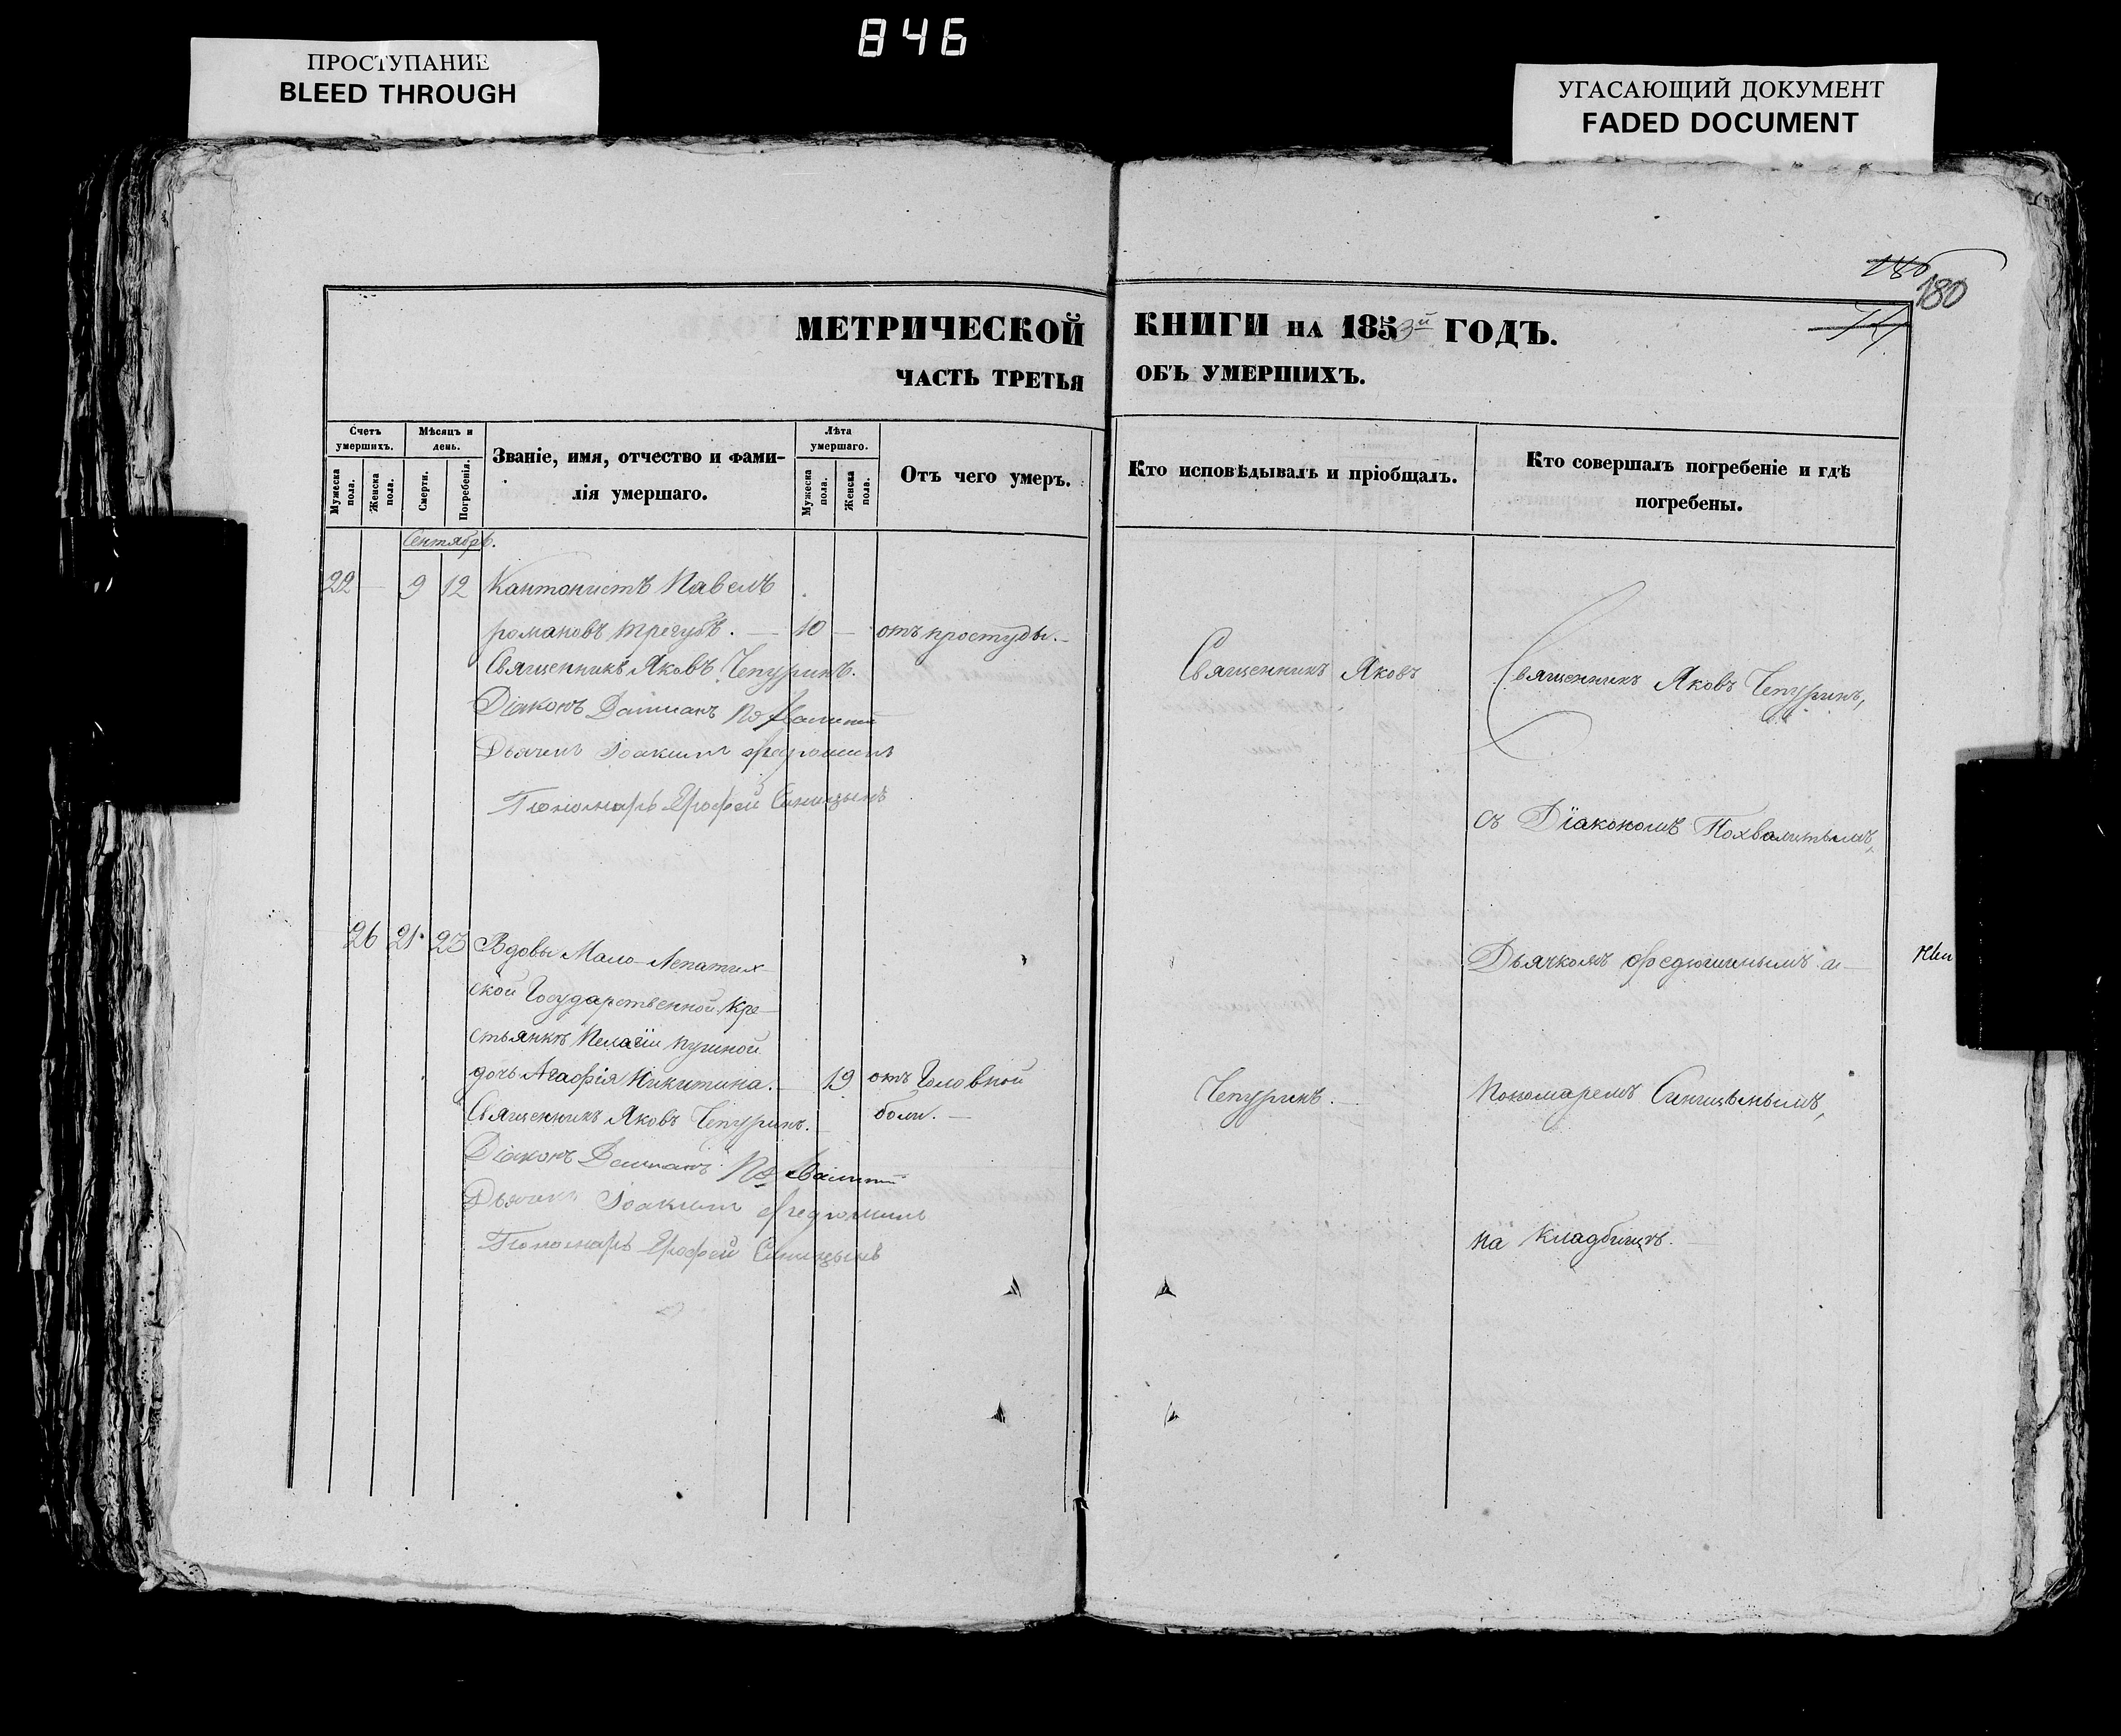 846
ПРОСТУПАНИЕ
BLEED THROUGH
УГАСАЮЩИЙ ДОКУМЕНТ
FADED DOCUMENT
180
180
МЕТРИЧЕСКОЙ КНИГИ НА 1853й ГОДЪ.
ЧАСТЬ ТРЕТЬЯ ОБЪ УМЕРШИХЪ.
Счетъ умершихъ.
Мужеска пола.
Женска пола.
Мѣсяцъ и день.
Смерти.
Погребенія.
Званіе, имя, отчество и фами-
лія умершаго.
Лѣта умершаго.
Мужеска пола.
Женска пола.
Отъ чего умеръ.
Кто исповѣдывалъ и пріобщалъ.
Кто совершалъ погребеніе и гдѣ
погребены.
Сентябрь.
22 — 9 12 Кантонистъ Павелъ
романовъ трегубъ. — 10 — отъ простуды. —
Священникъ Яковъ Чепуринъ.
Діаконъ Даміанъ
Дьячекъ Іоакимъ Федюшинъ
Пономарь Ерофей Синицынъ
26 21 23 Вдовы Мало-Лепатих-
ской Государственной кре-
стьянки Пелагіи
дочь Агафія Никитина. — 19 отъ Головной
боли. —
Священникъ Яковъ Чепуринъ.
Діаконъ Даміанъ
Дьячекъ Іоакимъ Федюшинъ
Пономарь Ерофей Синицынъ
Священникъ Яковъ
Чепуринъ. —
Священникъ Яковъ Чепуринъ,
съ Діакономъ Похвалитымъ,
Дьячкомъ Федюшинымъ и —
Пономаремъ Синицынымъ,
на кладбищѣ. —